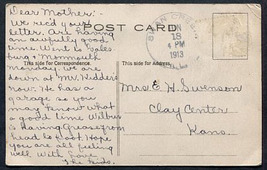 Dear Mother:-
We recd your
letter. Are having
an awfully good
time. Went to Gales
burg & Monmouth
Monday. We are
down at Mr. Hidde's
now. He has a
garage so you
may know what
a good time Wilbur
is having. Grease from
head to foot. Hope
you are all feeling
well. With love
The Kids.
POST CARD
This side for Correspondence.
This side for Address.
JUN
18
4 PM
1913
ILL.
Mrs. E. H. Swenson
Clay Center
Kans.